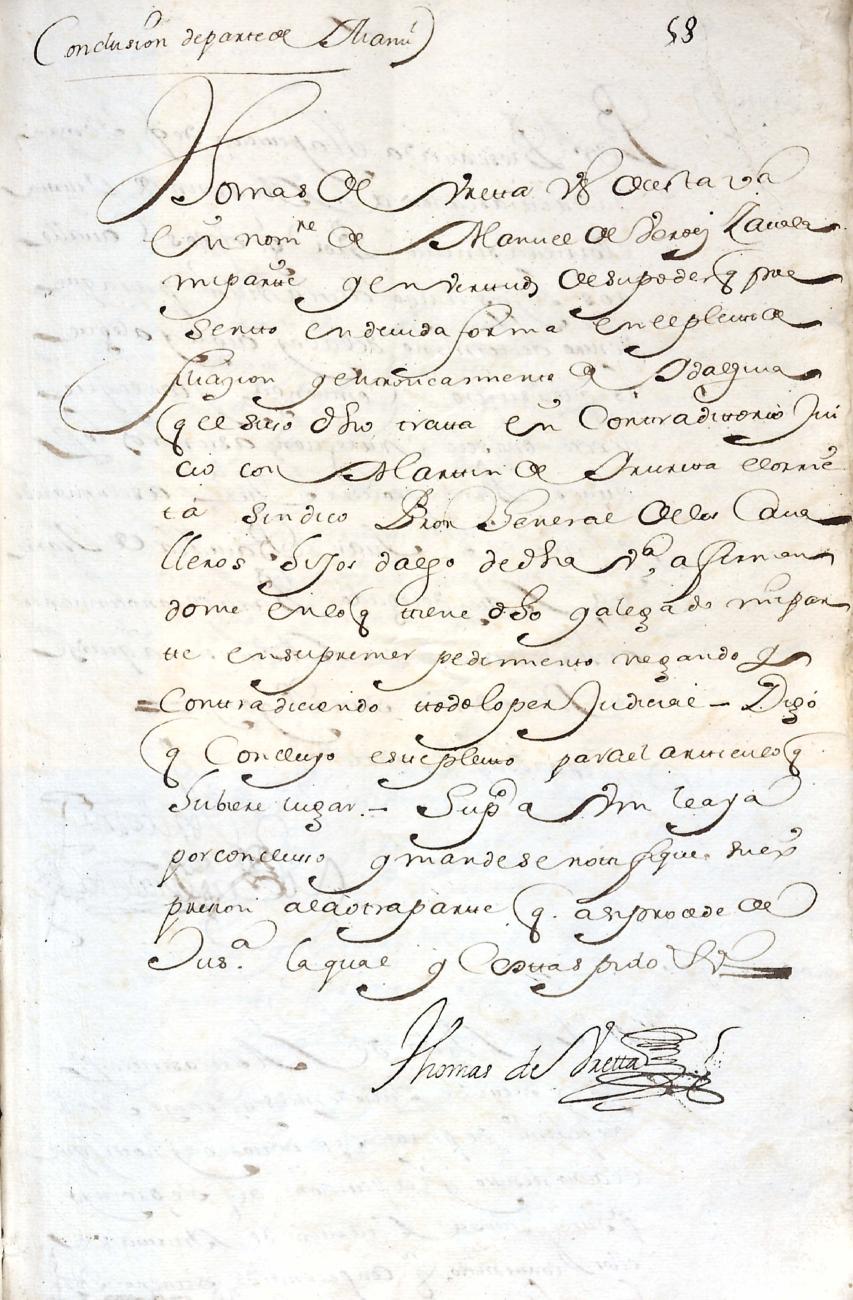 Conclusión de parte de Manu˜l
58
Thomas de Vretta Vº de esta va
en nomre de Manuel de Zavala
mi parte y en virtud de su poder q pre
sento en devida forma en el pleito de
filiazion y entroncamiento e ydalguia
q el suso dho trata en Contraditorio Jui
cio con Martin de Ururita elorrie
ta Sindico Pror General de los Cava
lleros hijos dalgo de dha va, afirman
dome en lo q tiene dho y alegado mi par
te en su primer pedimento negando y
Contradiciendo todo lo per Judicial – Digo
q Concluyo este pleito para el articulo q
hubiere lugar. – Suppco a Vm le aya
por concluso y mande se notifique su ex
presion a la otra parte q. asi procede de
Jusa. la qual y Costas pido Va
Thomas de Vretta